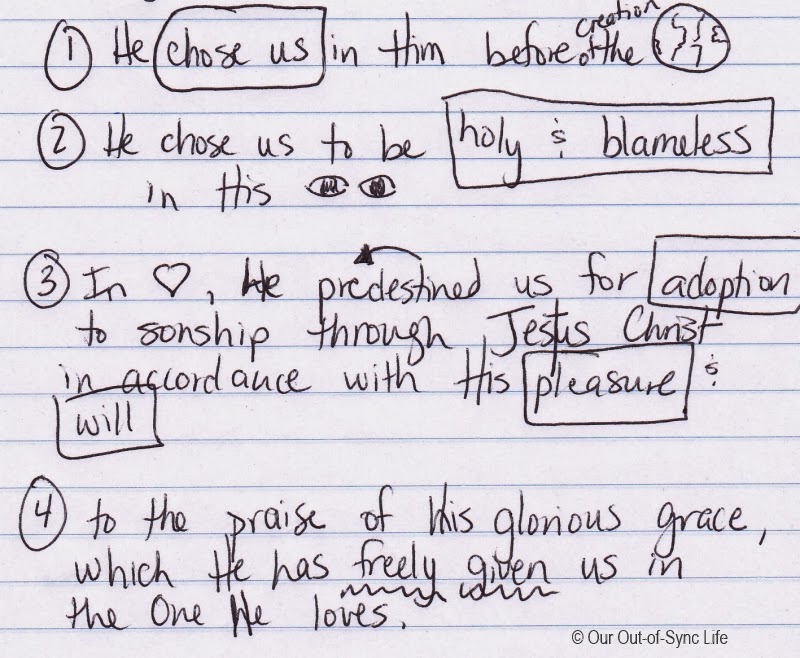 ① He chose us in Him before creation of the
② He chose us to be holy & blameless
in His
③ In ♡, He predestined us for adoption
to sonship through Jesus Christ
in accordance with His pleasure &
will
④ to the praise of His glorious grace,
which He has freely given us in
the One He loves.
© Our Out-of-Sync Life